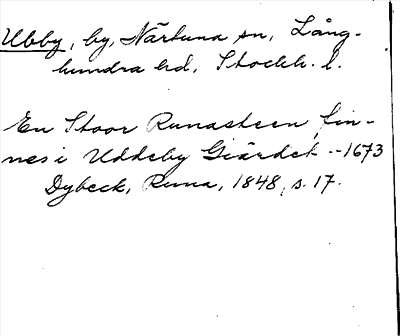 Ubby, by, Närtuna sn, Lång-
hundra hd, Stockh. l.
En Stoor Runasteen fin-
nes i Uddeby Giärdet --1673
Dybeck, Runa, 1848, s. 17.